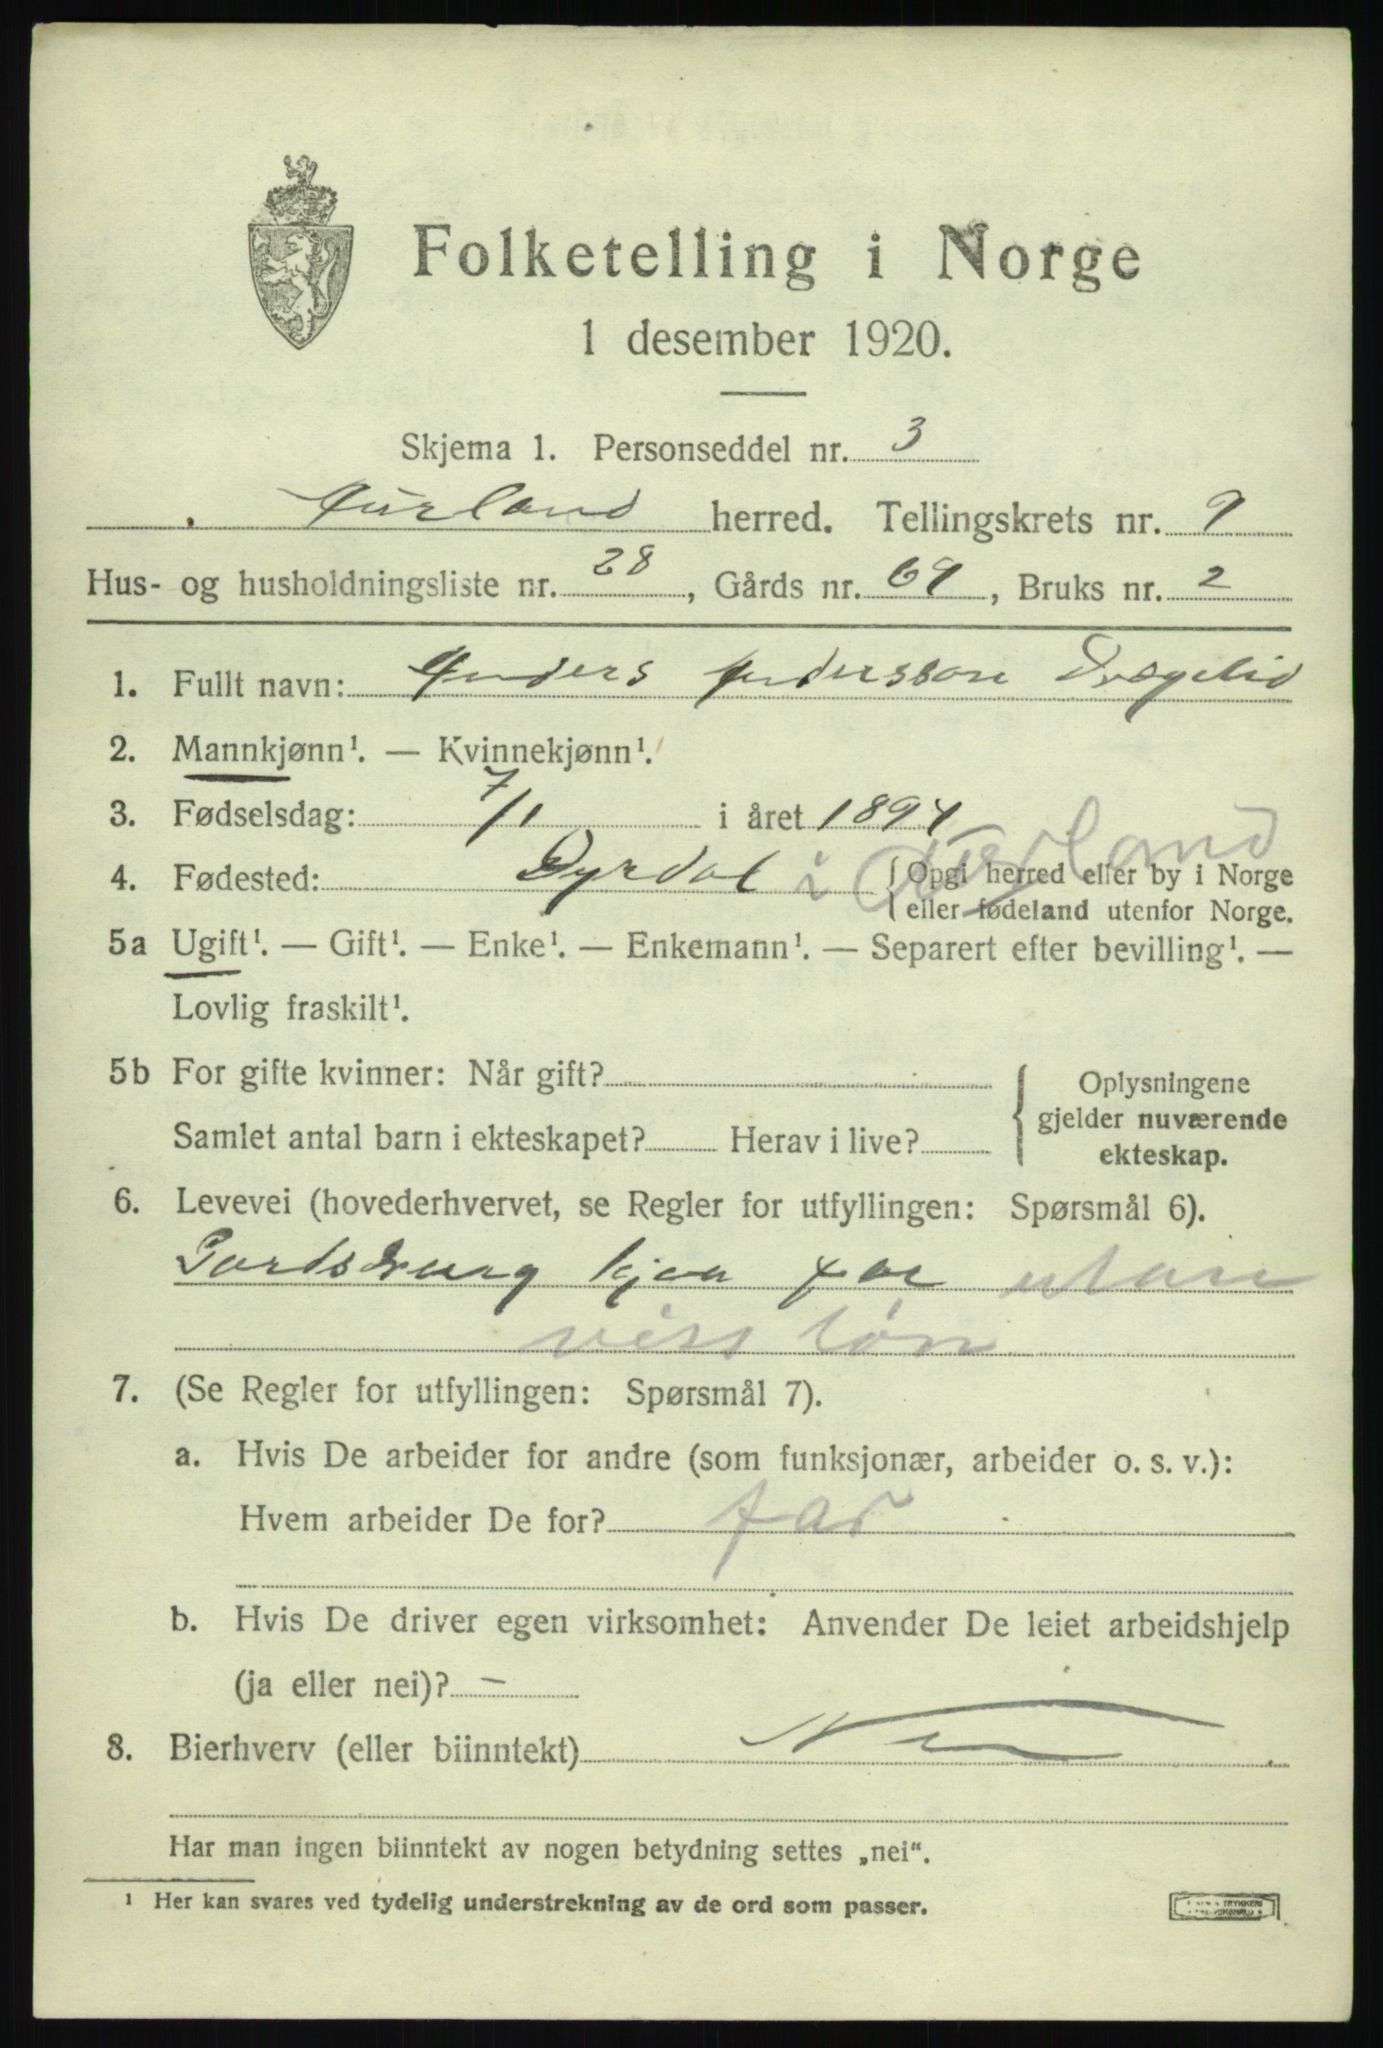 Folketelling i Norge
1 desember 1920.
Skjema 1. Personseddel nr. 3
Aurland herred. Tellingskrets nr. 9
Hus- og husholdningsliste nr. 28, Gårds nr. 69, Bruks nr. 2
1. Fullt navn: Anders Andersson
2. Mannkjønn¹. — Kvinnekjønn¹.
3. Fødselsdag: 7/1 i året 1894
4. Fødested: Dyrdal i Aurland {Opgi herred eller by i Norge
{eller fødeland utenfor Norge.
5a Ugift¹. — Gift¹. — Enke¹. — Enkemann¹. — Separert efter bevilling¹. —
Lovlig fraskilt¹.
5b For gifte kvinner: Når gift?
Samlet antal barn i ekteskapet? Herav i live?
{ Oplysningene
gjelder nuværende
ekteskap.
6. Levevei (hovederhvervet, se Regler for utfyllingen: Spørsmål 6).
Gardsdreng hjaa far utan
viss løn
7. (Se Regler for utfyllingen: Spørsmål 7).
a. Hvis De arbeider for andre (som funksjonær, arbeider o. s. v.):
Hvem arbeider De for? far
b. Hvis De driver egen virksomhet: Anvender De leiet arbeidshjelp
(ja eller nei)? –
8. Bierhverv (eller biinntekt) Nei
Har man ingen biinntekt av nogen betydning settes „nei“.
¹ Her kan svares ved tydelig understrekning av de ord som passer.